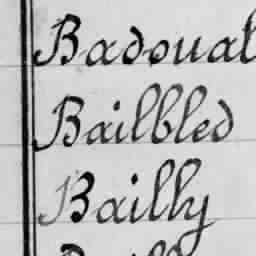 Badoual
Bailbled
Bailly